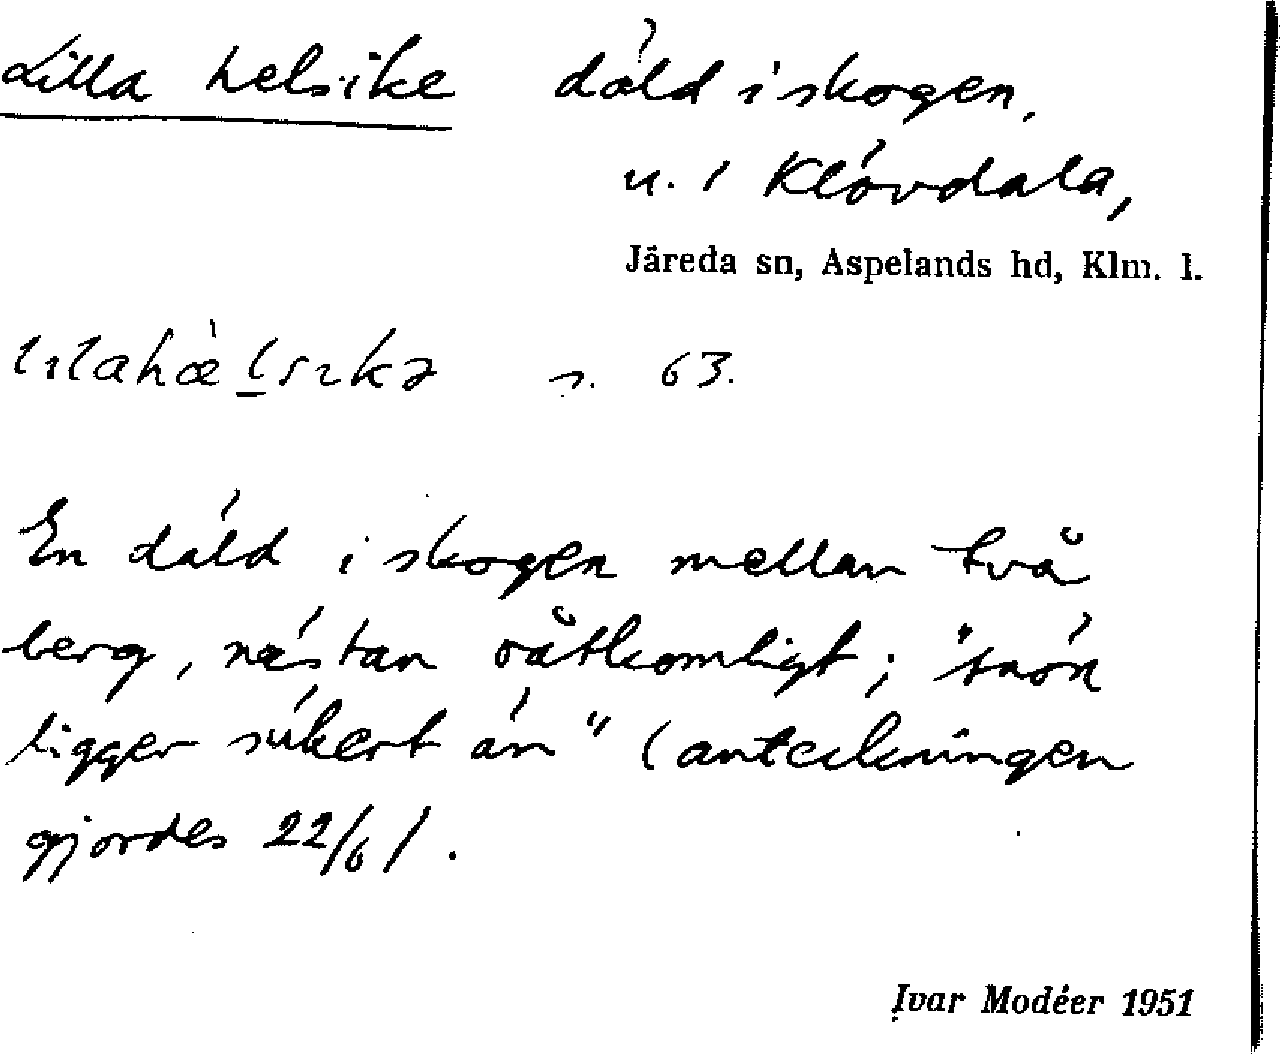 Lilla helsike däld i skogen,
u. i Klövdala,
Järeda sn, Aspelands hd, Klm. l.
s. 63.
En däld i skogen mellan två
berg, nästan oåtkomligt; "snön
ligger säkert än" (anteckningen
gjordes 22/6/.
Ivar Modéer 1951